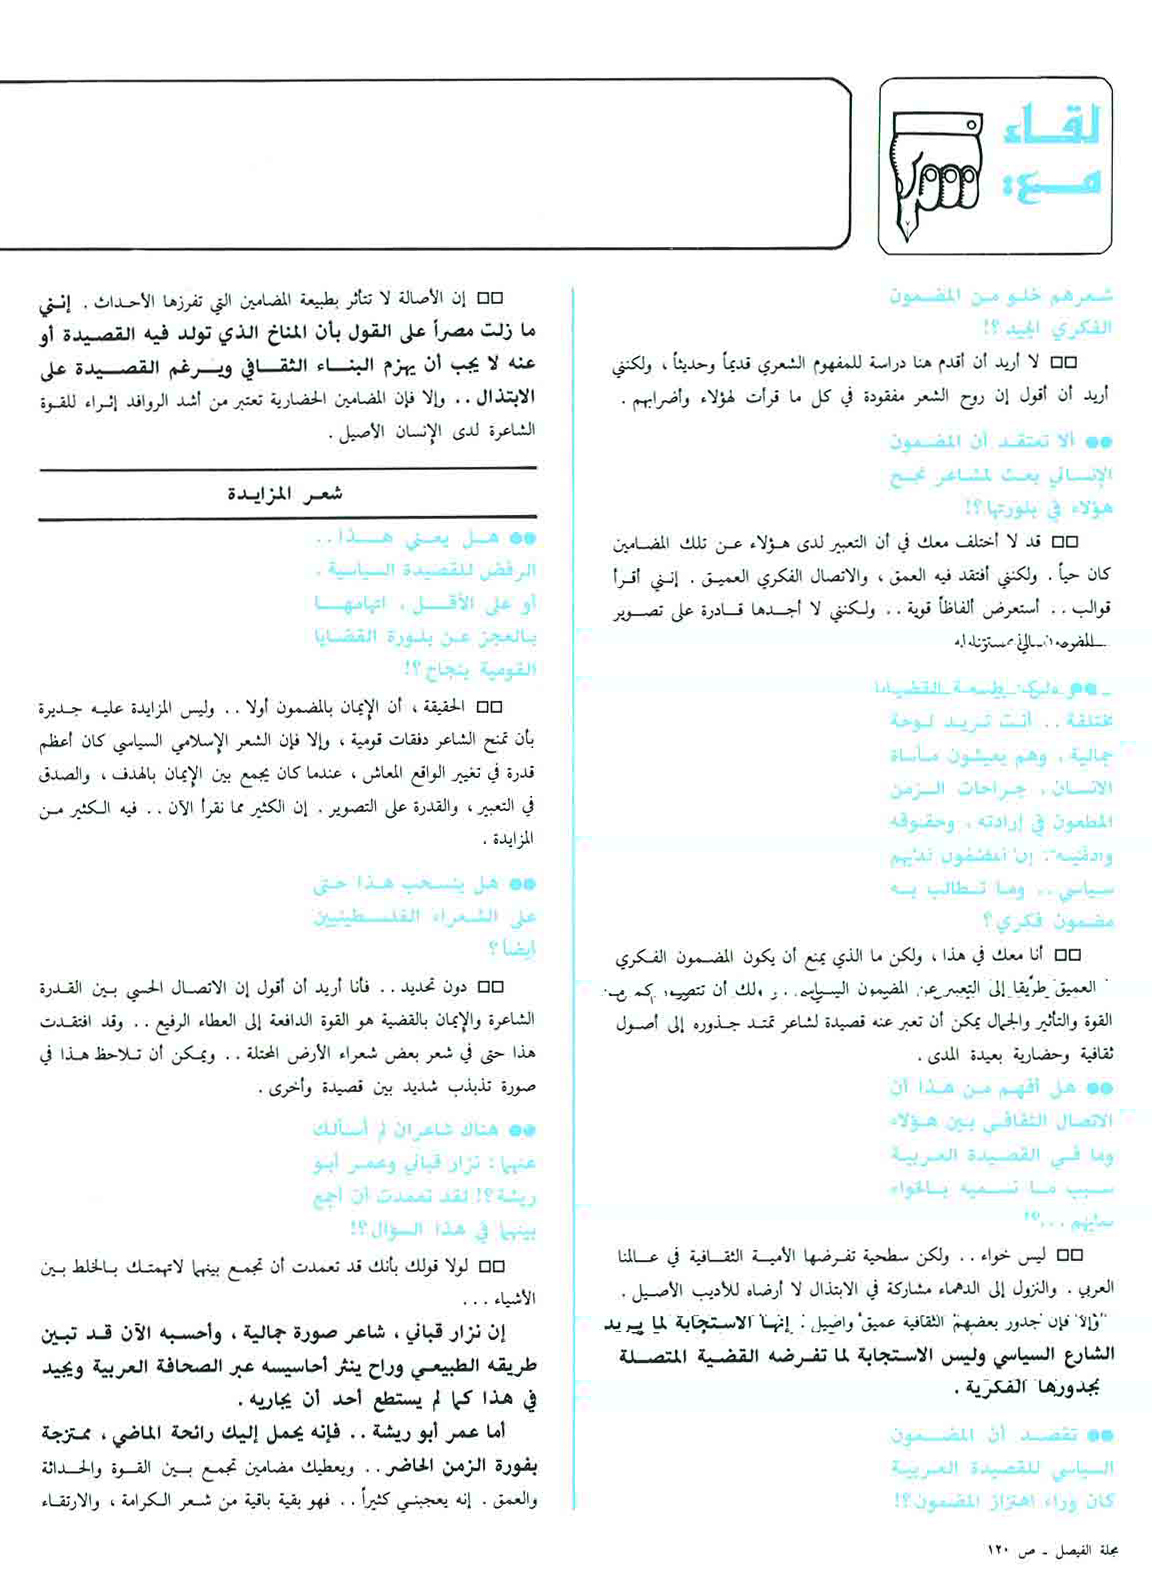 لقاء
مع:
شعرهم خلو من المضمون
الفكري الجيد؟!
□□ لا أريد أن أقدم هنا دراسة للمفهوم الشعري قديماً وحديثاً ، ولكنني
أريد أن أقول إن روح الشعر مفقودة في كل ما قرأت لهؤلاء وأضرابهم .
●● ألا تعتقد أن المضمون
الإنساني بعث لمشاعر نجح
هؤلاء في بلورتها؟!
□□ قد لا أختلف معك في أن التعبير لدى هؤلاء عن تلك المضامين
كان حياً . ولكنني أفتقد فيه العمق ، والاتصال الفكري العميق . إنني أقرأ
قوالب .. أستعرض ألفاظاً قوية .. ولكنني لا أجدها قادرة على تصوير
طبيعة القضايا
مختلفة .. أنت تريد لوحة
جمالية ، وهم يعيشون مأساة
الانسان ، جراحات الزمن
المطعون في إرادته ، وحقوقه
المضمون لديهم
سياسي .. وما تطالب به
مضمون فكري؟
□□ أنا معك في هذا ، ولكن ما الذي يمنع أن يكون المضمون الفكري
العميق طريقا إلى التعبير عن المضمون السياسي .. ولك أن تتصور كم من
القوة والتأثير والجمال يمكن أن تعبر عنه قصيدة لشاعر تمتد جذوره إلى أصول
ثقافية وحضارية بعيدة المدى .
●● هل أفهم من هذا أن
الاتصال الثقافي بين هؤلاء
وما في القصيدة العربية
سبب ما تسميه بالخواء
لديهم ...؟!
□□ ليس خواء .. ولكن سطحية تفرضها الأمية الثقافية في عالمنا
العربي . والنزول إلى الدهماء مشاركة في الابتذال لا أرضاه للأديب الأصيل .
وإلا فإن جدور بعضهم الثقافية عميق وأصيل : إنها الاستجابة لما يريد
الشارع السياسي وليس الاستجابة لما تفرضه القضية المتصلة
بجدورها الفكرية .
●● تقصد أن المضمون
السياسي للقصيدة العربية
كان وراء اهتزاز المضمون؟!
□□ إن الأصالة لا تتأثر بطبيعة المضامين التي تفرزها الأحداث . إنني
ما زلت مصراً على القول بأن المناخ الذي تولد فيه القصيدة أو
عنه لا يجب أن يهزم البناء الثقافي ويرغم القصيدة على
الابتذال .. وإلا فإن المضامين الحضارية تعتبر من أشد الروافد إثراء للقوة
الشاعرة لدى الإنسان الأصيل .
شعر المزايدة
●● هل يعني هذا ..
الرفض للقصيدة السياسية .
أو على الأقل ، اتهامها
بالعجز عن بلورة القضايا
القومية بنجاح؟!
□□ الحقيقة ، أن الإيمان بالمضمون أولا .. وليس المزايدة عليه جديرة
بأن تمنح الشاعر دفقات قومية ، وإلا فإن الشعر الإسلامي السياسي كان أعظم
قدرة في تغيير الواقع المعاش ، عندما كان يجمع بين الإيمان بالهدف ، والصدق
في التعبير ، والقدرة على التصوير . إن الكثير مما نقرأ الآن .. فيه الكثير من
المزايدة .
●● هل ينسحب هذا حتى
على الشعراء الفلسطينيين
أيضاً؟
□□ دون تحديد .. فأنا أريد أن أقول إن الاتصال الحسي بين القدرة
الشاعرة والإيمان بالقضية هو القوة الدافعة إلى العطاء الرفيع .. وقد افتقدت
هذا حتى في شعر بعض شعراء الأرض المحتلة .. ويمكن أن تلاحظ هذا في
صورة تذبذب شديد بين قصيدة وأخرى .
●● هناك شاعران لم أسألك
عنهما : نزار قباني وعمر أبو
ريشة؟! لقد تعمدت أن أجمع
بينهما في هذا السؤال؟!
□□ لولا قولك بأنك قد تعمدت أن تجمع بينهما لاتهمتك بالخلط بين
الأشياء ...
إن نزار قباني ، شاعر صورة جمالية ، وأحسبه الآن قد تبين
طريقه الطبيعي وراح ينثر أحاسيسه عبر الصحافة العربية ويجيد
في هذا كما لم يستطع أحد أن يجاريه .
أما عمر أبو ريشة .. فإنه يحمل إليك رائحة الماضي ، ممتزجة
بفورة الزمن الحاضر .. ويعطيك مضامين تجمع بين القوة والحداثة
والعمق . إنه يعجبني كثيراً .. فهو بقية باقية من شعر الكرامة ، والارتقاء
مجلة الفيصل ـ ص ١٢٠